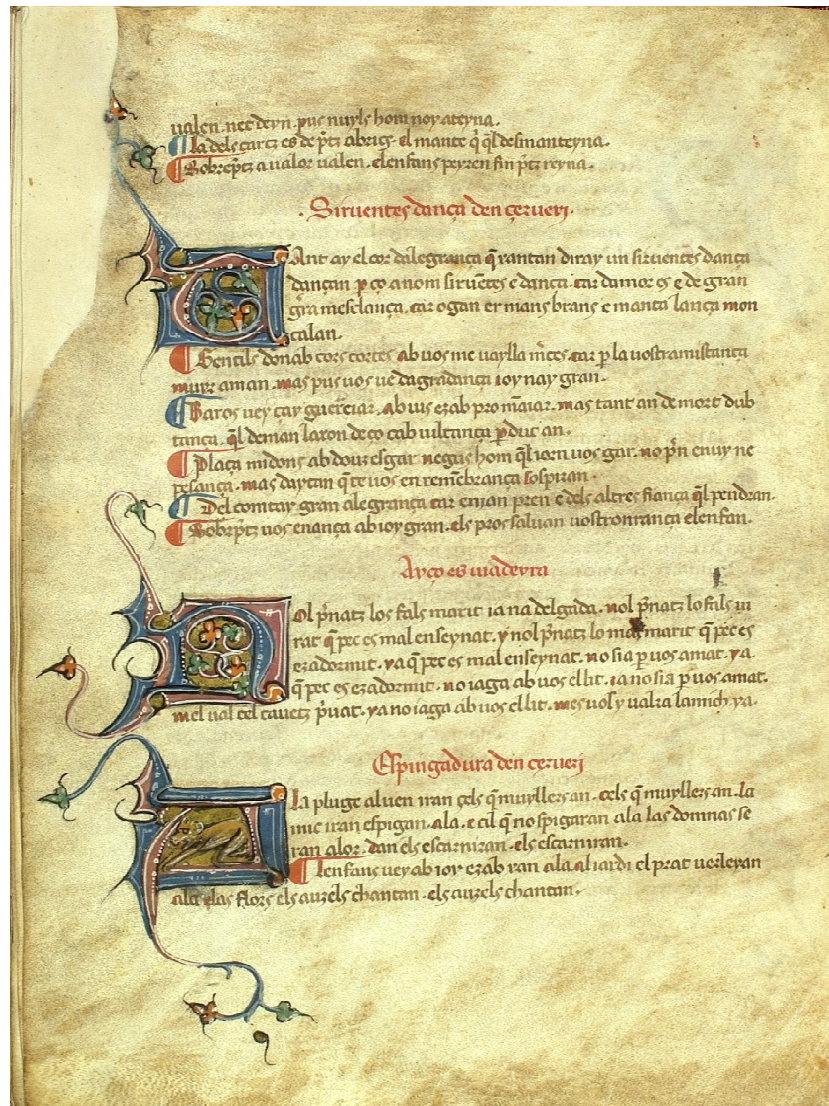 valen. nec deyn. pus nuyls hom noy ateyna.
¶ la dels cartz es de p̃tz abrigs. el mante q̃ q̃l desmanteyna.
¶ Sobrep̃tz a valor valen. elenfans peyr en fin p̃tz reyna.
. Siruentes dança den çerueri.
TAnt ay el cor dalegrança q̃ xantan diray un siruentes dança
dançan p ço a nom siruẽtes e dança. car damor es e de gran
gr̃a mesclança. car ogan er mans brans e manta lança mon
calan.
¶ Gentils donab cors cortes ab uos me uaylla m̃ces. car p la uostramistança
muyr aman. mas pus uos ue dagradança ioy nay gran.
¶ Baros uey çay guerreiar. ab uis ezab pro mãiar. mas tant an de mort dub
tança. q̃l deman laxon de ço cab uiltança pdut an.
¶ Plaça midons ab douz esgar negus hom q̃l iorn uos gar. no p̃n enuy ne
pesança. mas daytan q̃ te uos en remẽbrança sospiran.
¶ Del comtay gran alegrança car enian pren e dels altres fiança q̃l pendran.
¶ Sobrep̃tz uos enança ab ioy gran. els pros saluan uostronrança elenfan.
Ayço es uiadeyra
NOl p̃natz los fals marit iana delgada. nol p̃natz lo fals iu
rat q̃ pec es mal enseynat. y nol p̃natz lo mas marit q̃ pec es
ezadormit. ya q̃ pec es mal enseynat. no sia p uos amat. ya
q̃ pec es ezadormit. no iaga ab uos el lit. ia no sia p uos amat.
mel ual cel cauetz p̃uat. ya no iaga ab uos el lit. mes uos y ualra lamich ya.
Espingadura den çerueri
A la pluge al uen iran cels q̃ muyllers an. cels q̃ muyllers an. la
inic iran espigan. ala. e cil q̃ no spigaran ala las domnas se
ran alor. dan els escarniran. els escarniran.
¶ lenfans uey ab ioy ezab xan ala al iardi el prat uerleian
ala elas flors els auzels chantan. els auzels chantan.